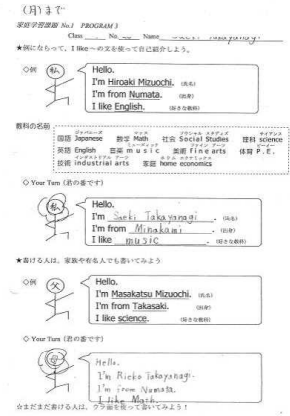 (月)まで
家庭学習課題 No.1 PROGRAM 3
Class No. Name Saeki Takayanagi
★例にならって、I like~の文を使って自己紹介しよう。
◇例
私
Hello.
I'm Hiroaki Mizuochi. (氏名)
I'm from Numata. (出身)
I like English. (好きな教科)
教科の名前
ジャパニーズ マス ソウシャル スタディズ サイアンス
国語 Japanese 数学 Math 社会 Social Studies 理科 science
ミュージック ファイン アーツ ピーイー
英語 English 音楽 music 美術 fine arts 体育 P.E.
インダストリアル アーツ ホウム エコナミックス
技術 industrial arts 家庭 home economics
◇ Your Turn (君の番です)
私
Hello.
I'm Saeki Takayanagi. (氏名)
I'm from Minakami. (出身)
I like music. (好きな教科)
★書ける人は、家族や有名人でも書いてみよう
◇例
父
Hello.
I'm Masakatsu Mizuochi. (氏名)
I'm from Takasaki. (出身)
I like science. (好きな教科)
◇ Your Turn (君の番です)
母
Hello.
I'm Rieko Takayanagi.
I'm from Numata.
I like Math.
☆まだまだ書ける人は、ウラ面を使って書いてみよう!